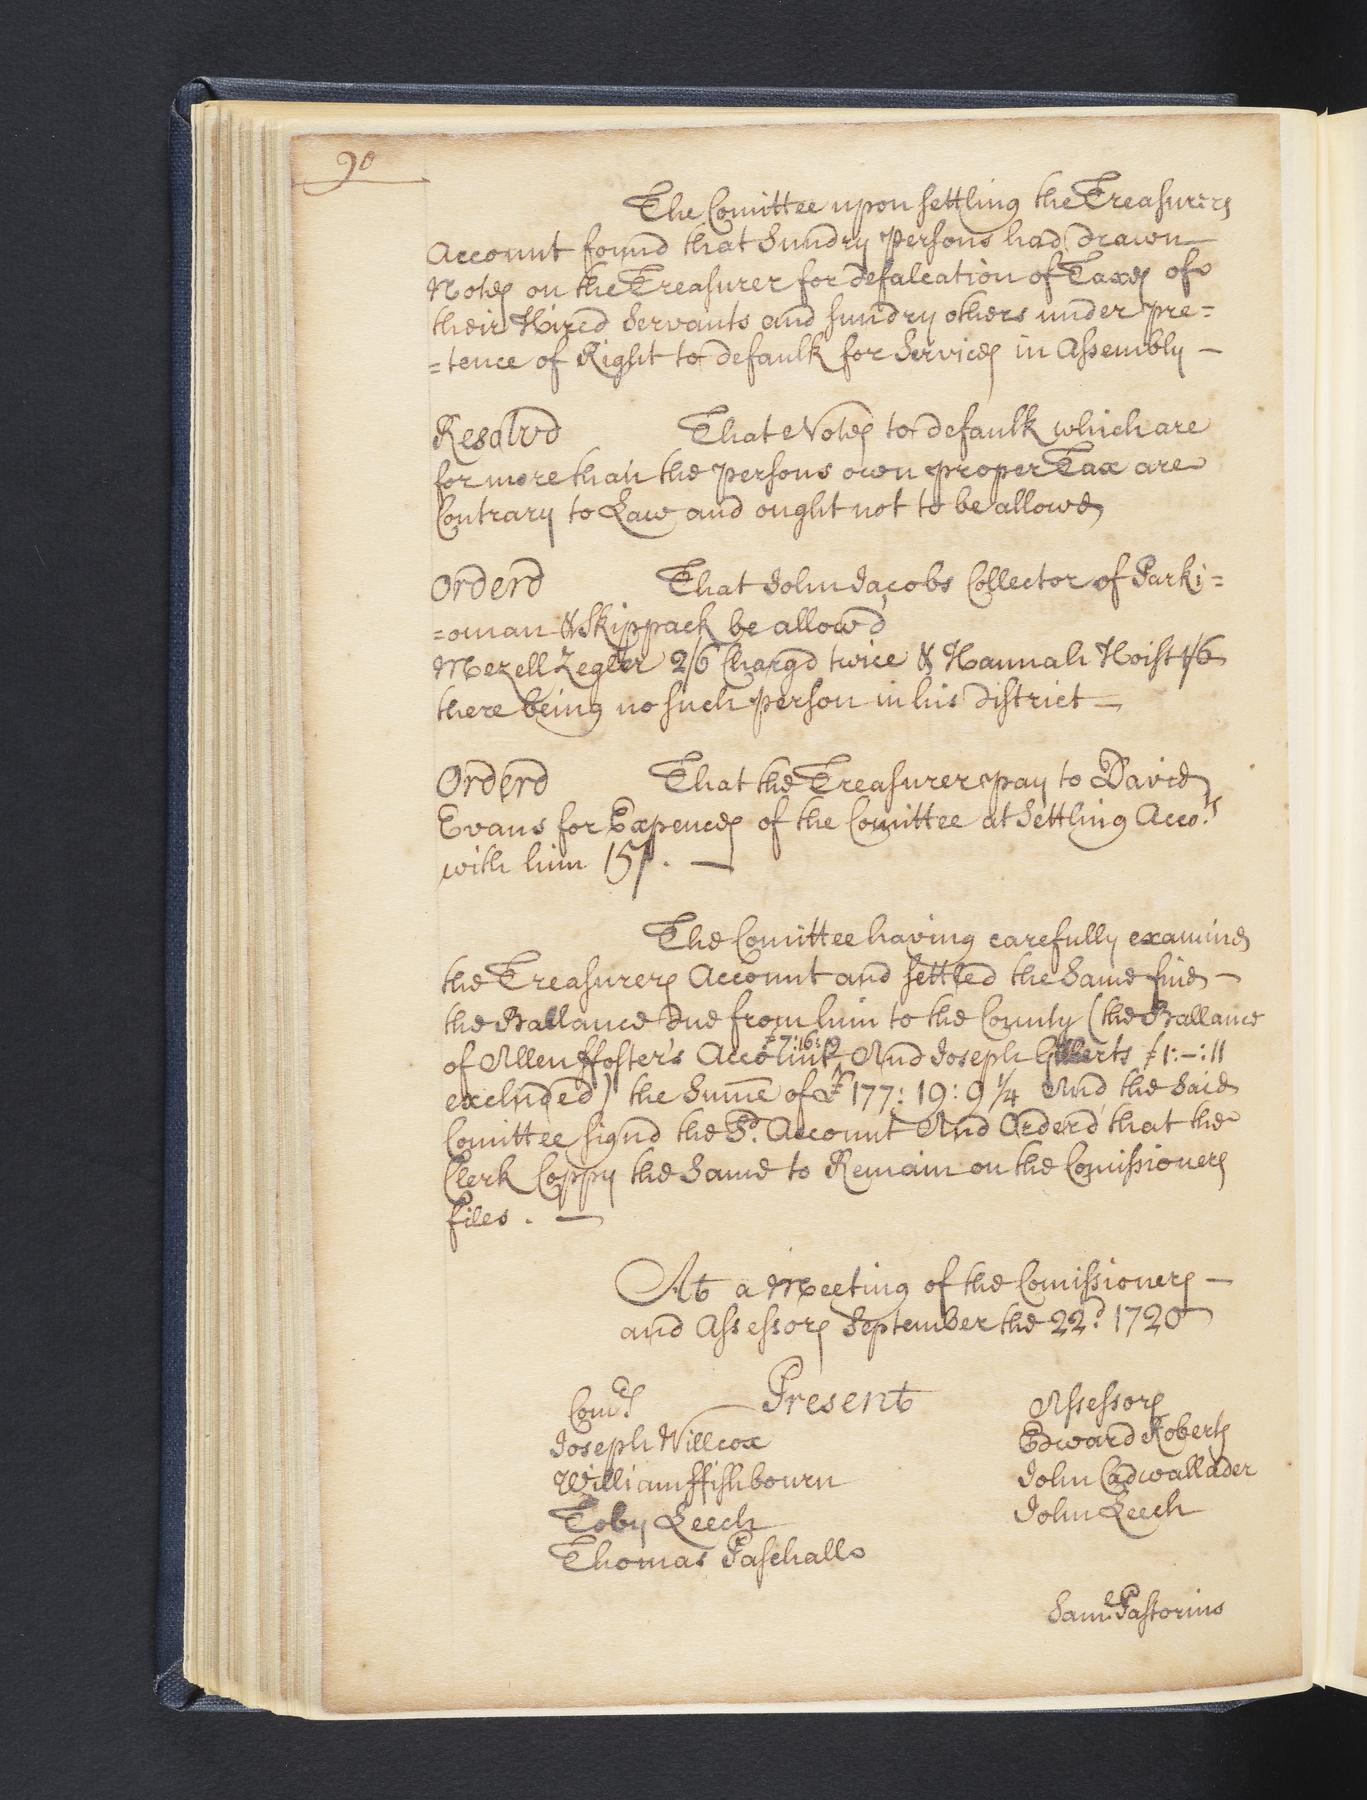 90
The Comittee upon settling the Treasurers
Account found that Sundry Persons had drawn
Notes on the Treasurer for defalcation of Taxes of
their Hired Servants and sundry others under pre=
=tence of Right to defaulk for Services in Assembly —
Resolvd That Notes to defaulk which are
for more than the Persons own proper Tax are
Contrary to Law and ought not to be allowed
Orderd That John Jacobs Collector of Parki=
=oman & Skippack be allow'd
Mezell Zegler 2/6 Chargd twice & Hannah Hoist 1/6
there being no such person in his district —
Orderd That the Treasurer pay to David
Evans for Expences of the Comittee at Settling Acco.ts
with him 15/. —
The Comittee having carefully examined
the Treasurers Account and settled the Same find —
the Ballance due from him to the County (the Ballance
£7:16:
of Allen ffoster's Account And Joseph Gilberts £1:–:11
excluded) the Sume of £177:19:9 1/4 And the Said
Comittee signd the Sd. Account And Order'd that the
Clerk Coppy the Same to Remain on the Comissioners
files. —
At a Meeting of the Comissioners —
and Assessors September the 22d 1720
Comrs Present Assessors
Joseph Willcox Edward Roberts
William ffishbourn John Cadwallader
Toby Leech John Leech
Thomas Paschall
Saml. Pastorius